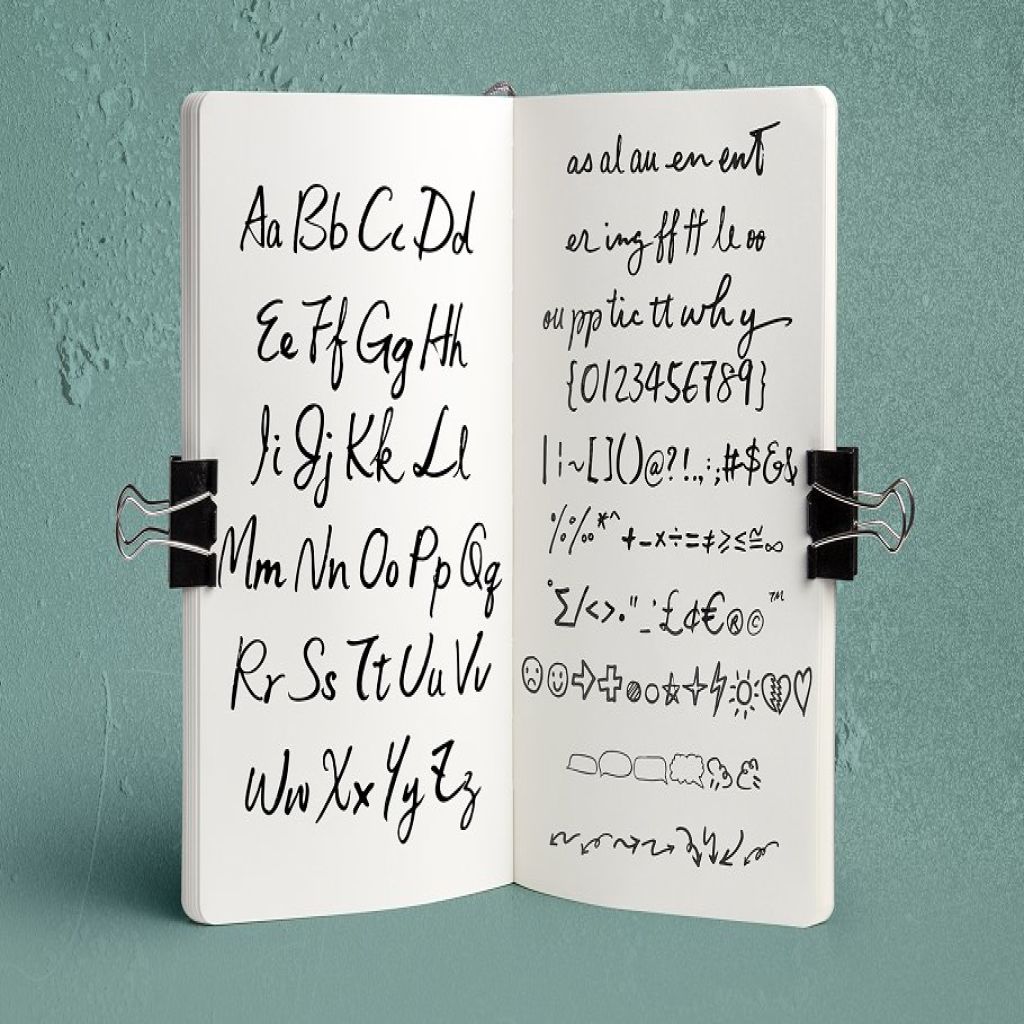 Aa Bb Cc Dd
Ee Ff Gg Hh
Ii Jj Kk Ll
Mm Nn Oo Pp Qq
Rr Ss Tt Uu Vv
Ww Xx Yy Zz
as al au en ent
er ing ff tt le oo
ou pp tic tt why
{0123456789}
|¦~[]()@?!.,:;#$&&
%‰*^+-×÷=≠≥≤≅∞
°Σ/<>•"_'£¢€®©™
☹☺⇨✚●○★✦⚡☀💔♡